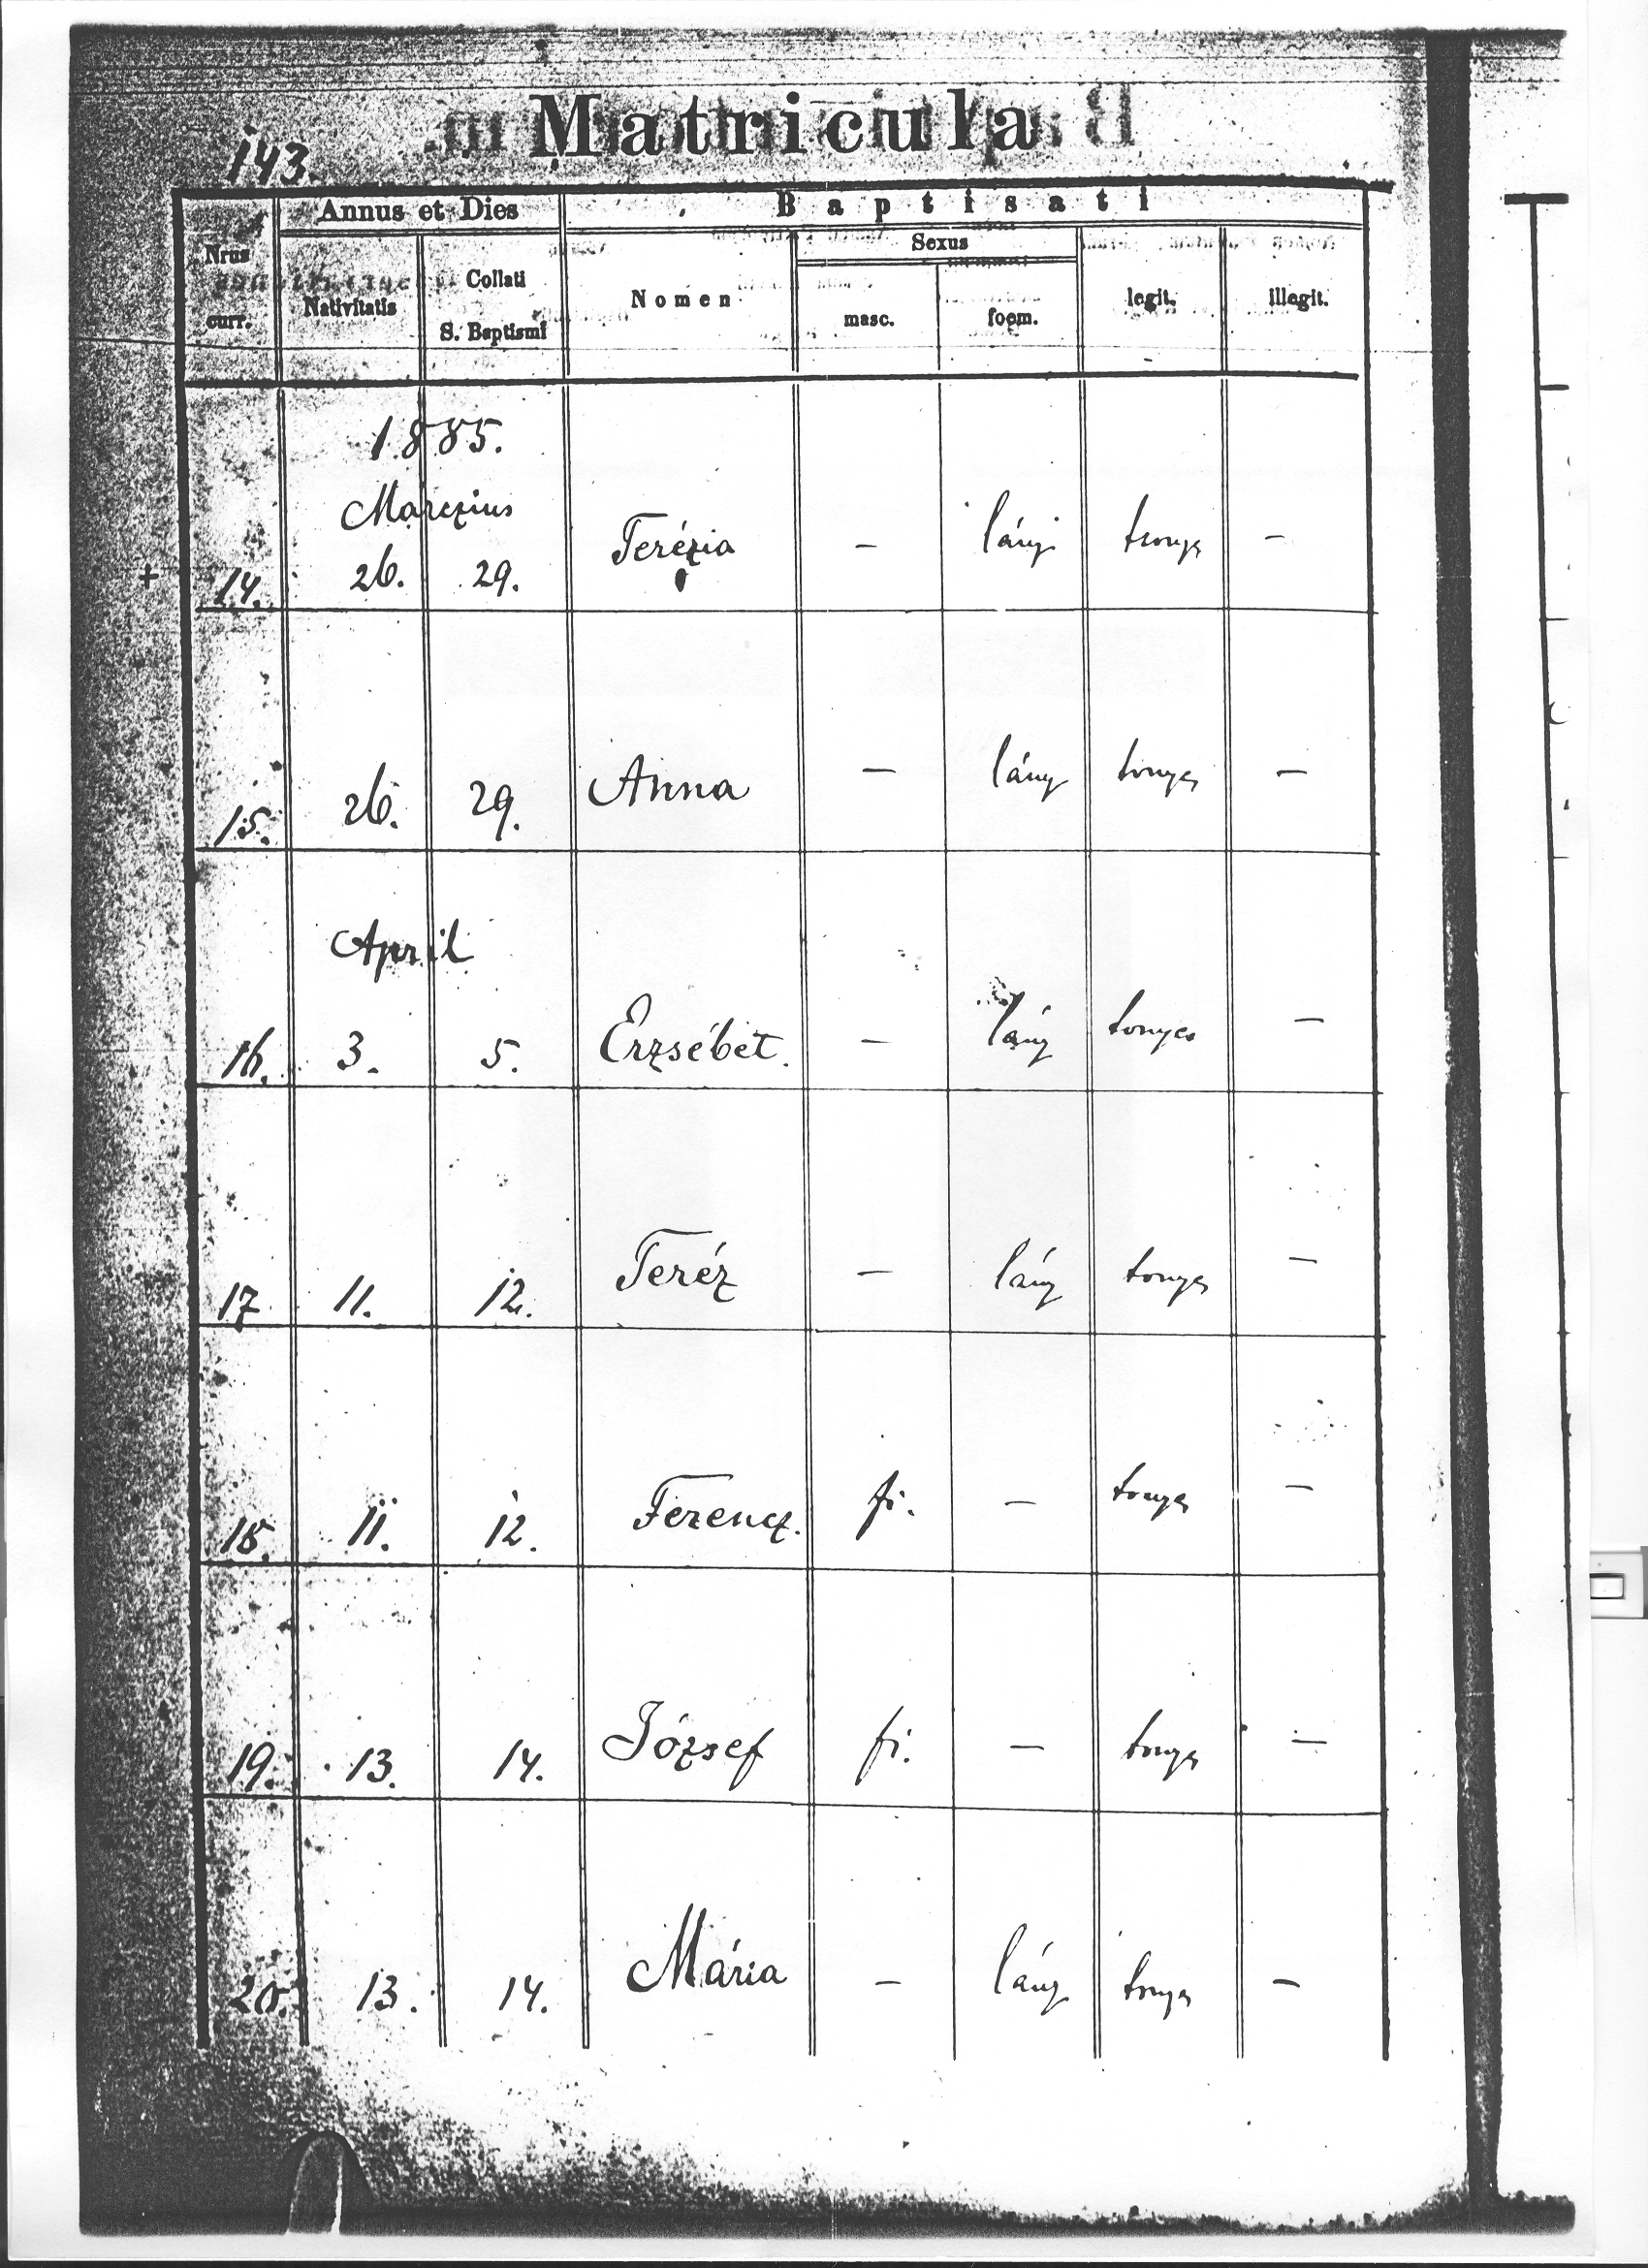 143.
Matricula
Nrus curr. Annus et Dies Baptisati
Nativitatis Collati S. Baptismi Nomen Sexus legit. illegit.
masc. foem.
1885.
Marczius
14. 26. 29. Terézia — lány —
15. 26. 29. Anna — lány tvnyes —
April
16. 3. 5. Erzsébet. — lány tvnyes —
17 11. 12. Teréz — lány tvnyes —
18. 11. 12. Ferencz. fi. — tvnyes —
19. 13. 14. József fi. — tvnyes —
20. 13. 14. Mária — lány tvnyes —